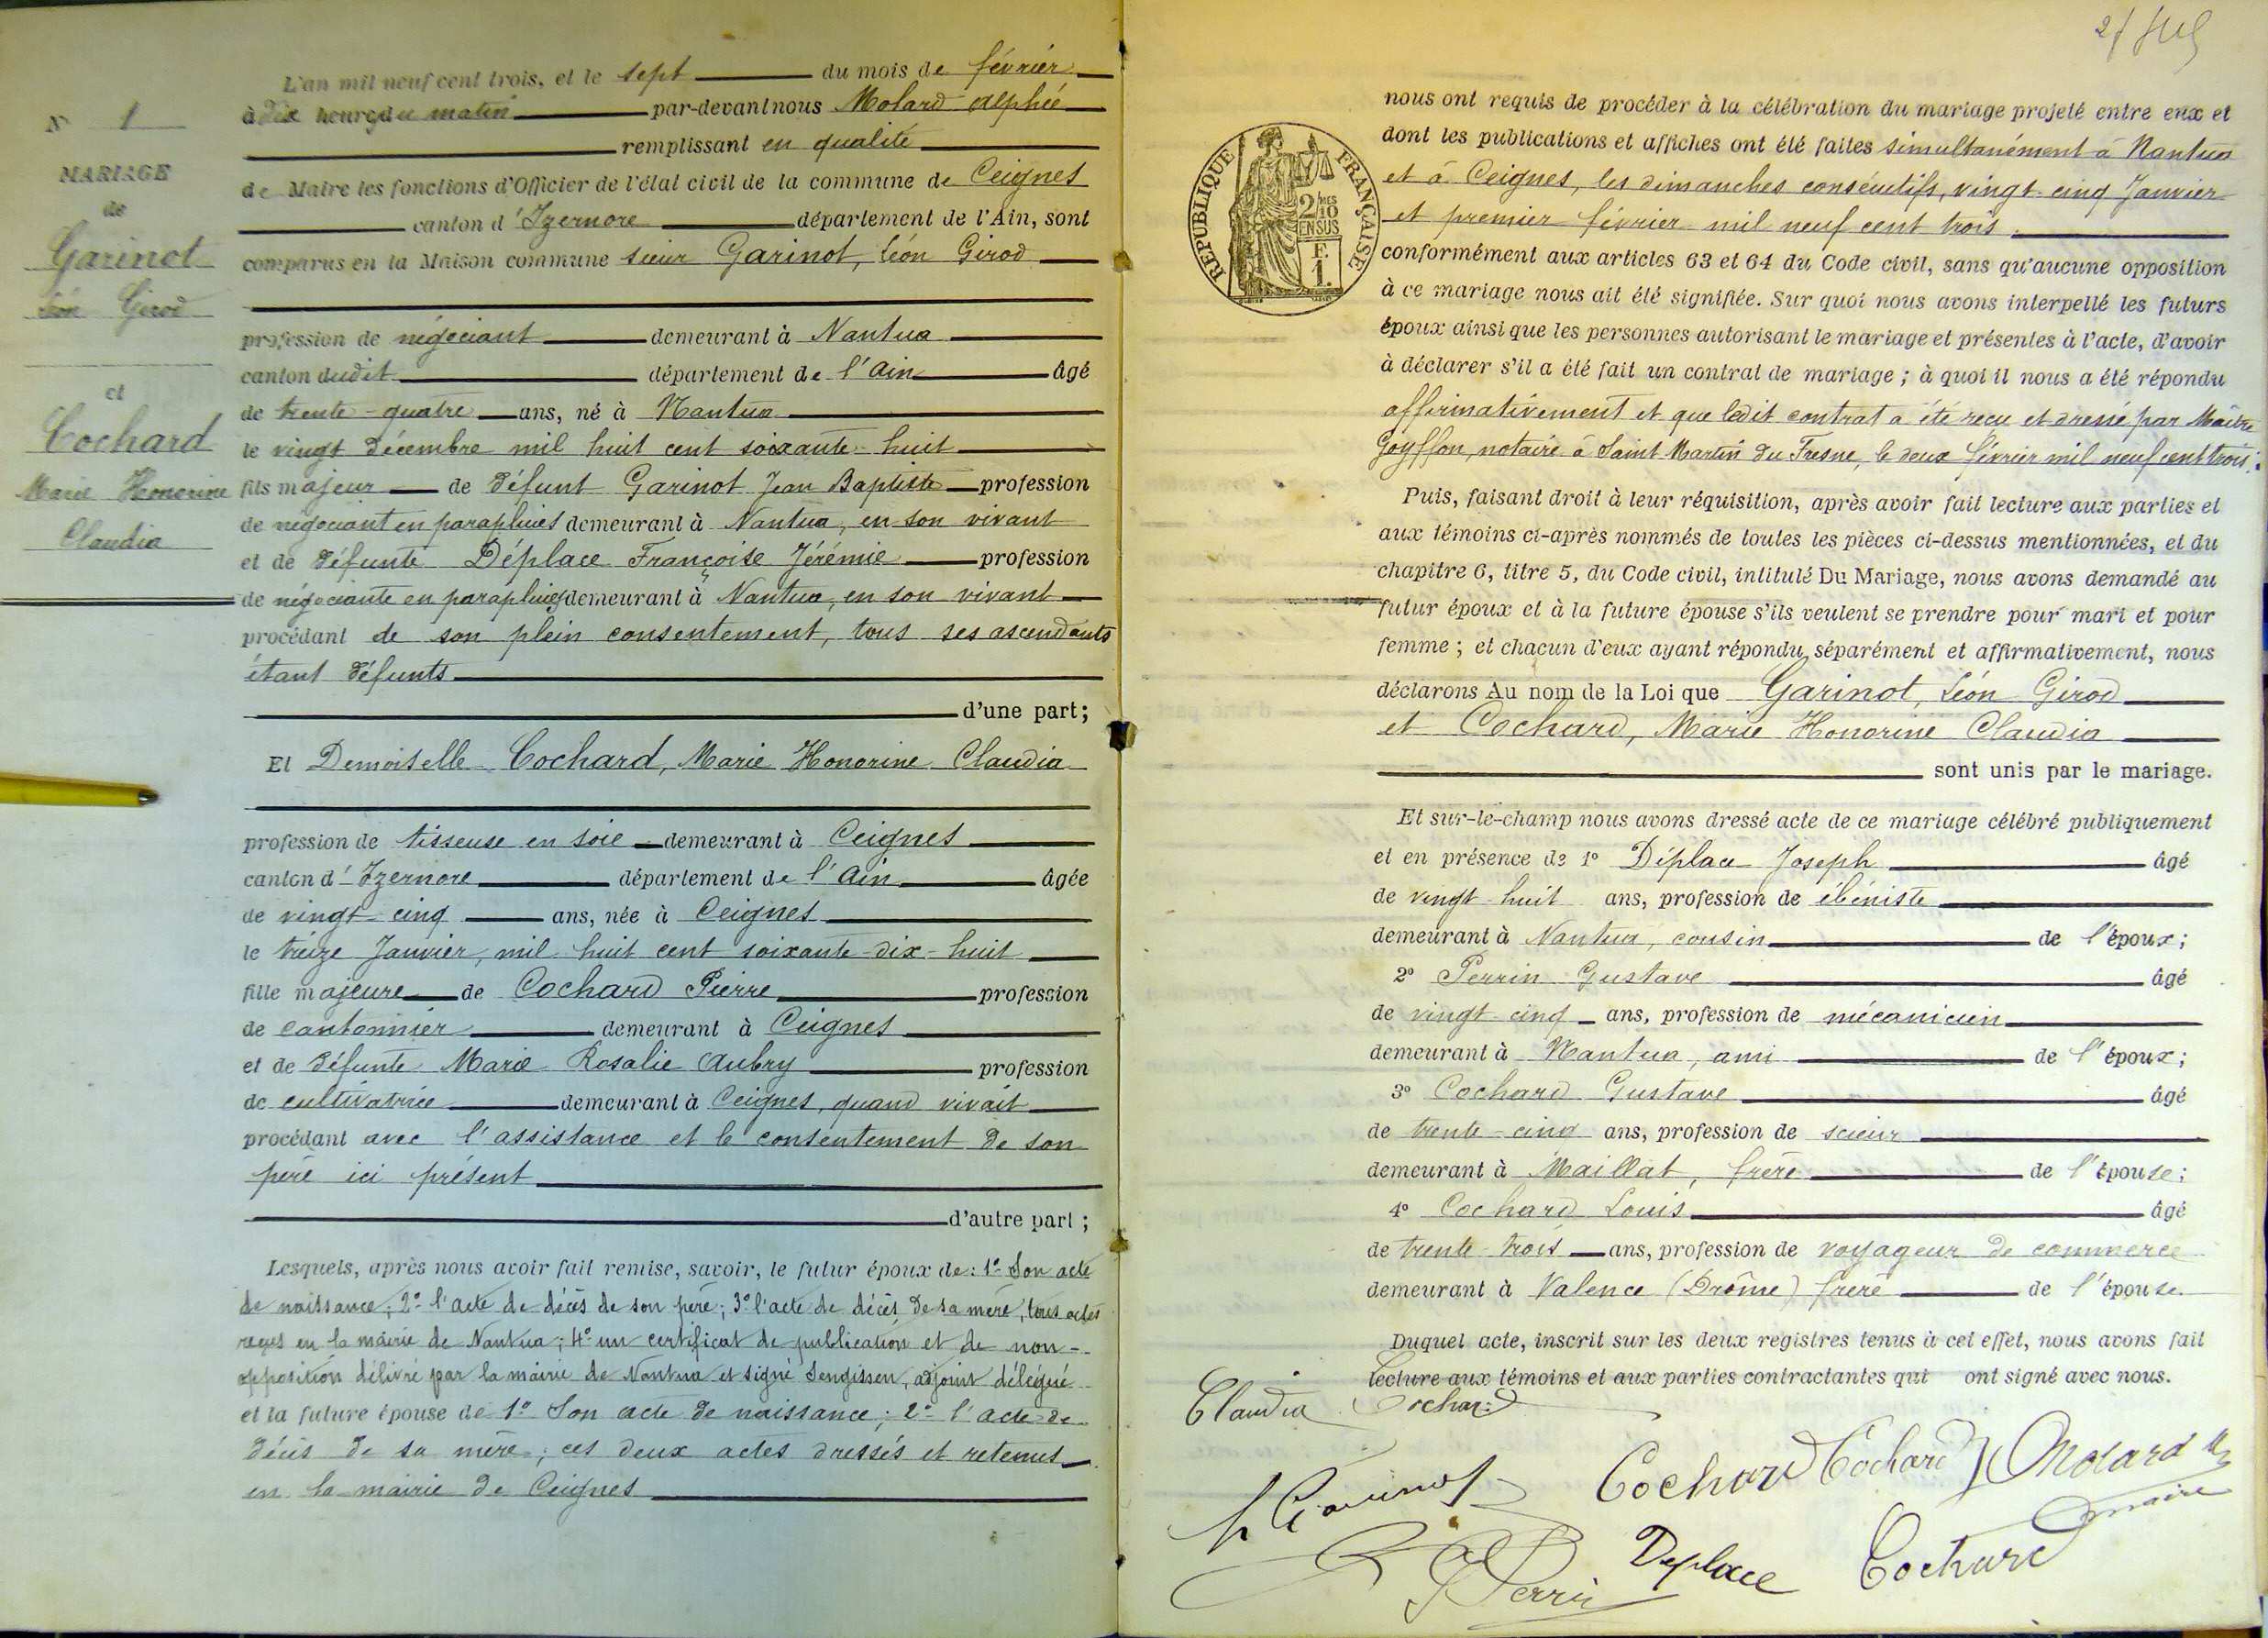 N° 1
MARIAGE
de
Garinot
Léon Girod
et
Cochard
Marie Honorine
Claudia
L'an mil neuf cent trois, et le sept du mois de février
à dix heures du matin par-devant nous Molard Alphée
remplissant en qualité
de Maire les fonctions d'Officier de l'état civil de la commune de Ceignes
canton d'Izernore département de l'Ain, sont
comparus en la Maison commune sieur Garinot, Léon Girod
profession de négociant demeurant à Nantua
canton dudit département de l'Ain âgé
de trente-quatre ans, né à Nantua
le vingt décembre mil huit cent soixante-huit
fils majeur de défunt Garinot Jean Baptiste profession
de négociant en parapluies demeurant à Nantua, en son vivant
et de défunte Déplace Françoise Jérémie profession
de négociante en parapluies demeurant à Nantua, en son vivant
procédant de son plein consentement, tous ses ascendants
étant défunts
d'une part;
Et Demoiselle Cochard, Marie Honorine Claudia
profession de tisseuse en soie demeurant à Ceignes
canton d'Izernore département de l'Ain âgée
de vingt-cinq ans, née à Ceignes
le treize Janvier, mil huit cent soixante-dix-huit
fille majeure de Cochard Pierre profession
de cantonnier demeurant à Ceignes
et de défunte Marie Rosalie Aubry profession
de cultivatrice demeurant à Ceignes, quand vivait
procédant avec l'assistance et le consentement de son
père ici présent
d'autre part;
Lesquels, après nous avoir fait remise, savoir, le futur époux de: 1° Son acte
de naissance; 2° l'acte de décès de son père; 3° l'acte de décès de sa mère, tous actes
reçus en la mairie de Nantua; 4° un certificat de publication et de non-
opposition délivré par la mairie de Nantua et signé adjoint délégué
et la future épouse de 1° Son acte de naissance; 2° l'acte de
décès de sa mère; ces deux actes dressés et retenus
en la mairie de Ceignes
nous ont requis de procéder à la célébration du mariage projeté entre eux et
dont les publications et affiches ont été faites simultanément à Nantua
et à Ceignes, les dimanches consécutifs, vingt-cinq Janvier
et premier février mil neuf cent trois
RÉPUBLIQUE FRANÇAISE
2/10MES
EN SUS
F.
1.
conformément aux articles 63 et 64 du Code civil, sans qu'aucune opposition
à ce mariage nous ait été signifiée. Sur quoi nous avons interpellé les futurs
époux ainsi que les personnes autorisant le mariage et présentes à l'acte, d'avoir
à déclarer s'il a été fait un contrat de mariage; à quoi il nous a été répondu
affirmativement et que ledit contrat a été reçu et dressé par Maître
Goyffon, notaire à Saint Martin du Fresne, le deux février mil neuf cent trois.
Puis, faisant droit à leur réquisition, après avoir fait lecture aux parties et
aux témoins ci-après nommés de toutes les pièces ci-dessus mentionnées, et du
chapitre 6, titre 5, du Code civil, intitulé Du Mariage, nous avons demandé au
futur époux et à la future épouse s'ils veulent se prendre pour mari et pour
femme; et chacun d'eux ayant répondu séparément et affirmativement, nous
déclarons Au nom de la Loi que Garinot, Léon Girod
et Cochard, Marie Honorine Claudia
sont unis par le mariage.
Et sur-le-champ nous avons dressé acte de ce mariage célébré publiquement
et en présence de 1° Déplace Joseph âgé
de vingt-huit ans, profession de ébéniste
demeurant à Nantua, cousin de l'époux;
2° Perrin Gustave âgé
de vingt-cinq ans, profession de mécanicien
demeurant à Nantua, ami de l'époux;
3° Cochard Gustave âgé
de trente-cinq ans, profession de scieur
demeurant à Maillat, frère de l'épouse;
4° Cochard Louis âgé
de trente-trois ans, profession de voyageur de commerce
demeurant à Valence (Drôme) frère de l'épouse.
Duquel acte, inscrit sur les deux registres tenus à cet effet, nous avons fait
lecture aux témoins et aux parties contractantes qui ont signé avec nous.
Claudia Cochard
Garinot Cochard Cochard Molard
maire
Perrin Deplace Cochard